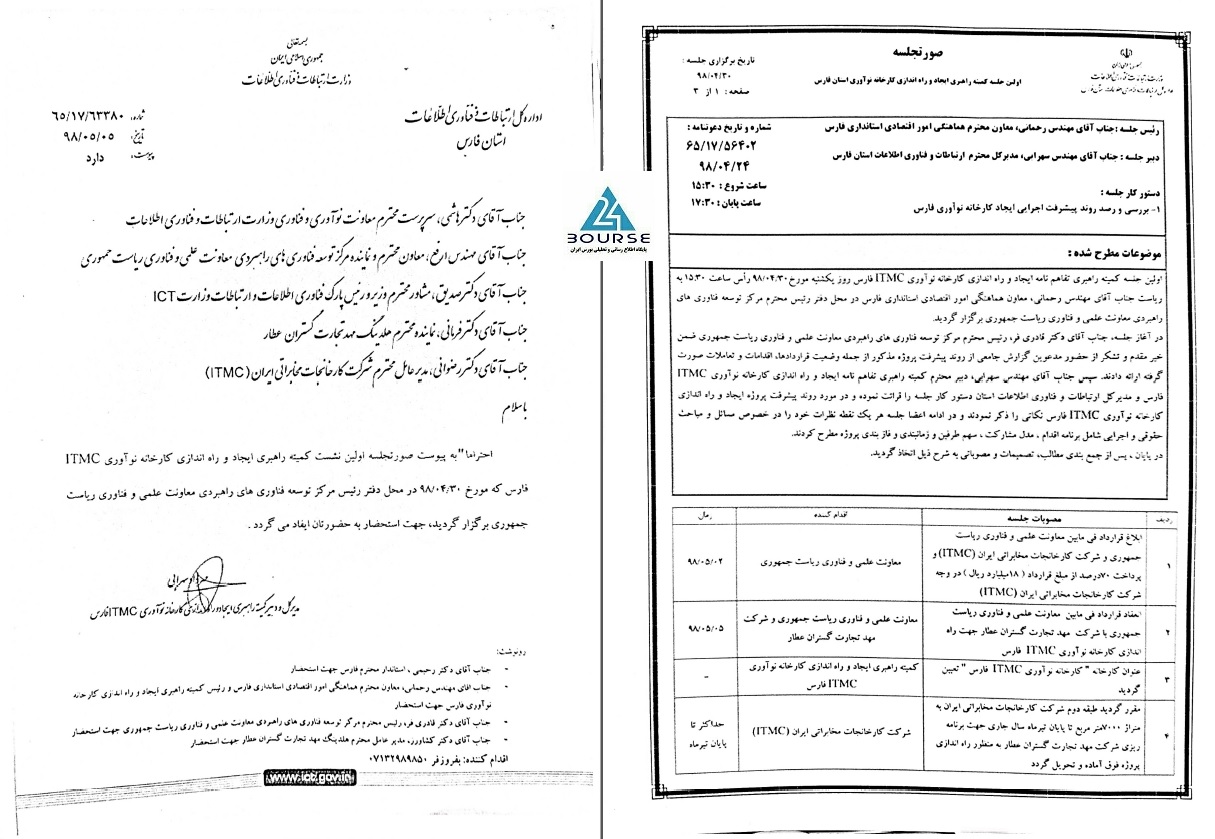 بسمه تعالی
جمهوری اسلامی ایران
وزارت ارتباطات و فناوری اطلاعات
اداره کل ارتباطات و فناوری اطلاعات
استان فارس
شماره: ۶۵/۱۷/۶۳۳۸۰
تاریخ: ۹۸/۰۵/۰۵
پیوست: دارد
جناب آقای دکتر هاشمی، سرپرست محترم معاونت نوآوری و فناوری وزارت ارتباطات و فناوری اطلاعات
جناب آقای مهندس ارفع، معاون محترم و نماینده مرکز توسعه فناوری های راهبردی معاونت علمی و فناوری ریاست جمهوری
جناب آقای دکتر صدیق، مشاور محترم وزیر و رئیس پارک فناوری اطلاعات و ارتباطات وزارت ICT
جناب آقای دکتر قربانی، نماینده محترم هلدینگ مهد تجارت گستران عطار
جناب آقای دکتر رضوانی، مدیر عامل محترم شرکت کارخانجات مخابراتی ایران (ITMC)
با سلام
احتراما" به پیوست صورتجلسه اولین نشست کمیته راهبری ایجاد و راه اندازی کارخانه نوآوری ITMC
فارس که مورخ ۹۸/۰۴/۳۰ در محل دفتر رئیس مرکز توسعه فناوری های راهبردی معاونت علمی و فناوری ریاست
جمهوری برگزار گردید، جهت استحضار به حضورتان ایفاد می گردد .
مدیر کل و دبیر کمیته راهبری ایجاد و راه اندازی کارخانه نوآوری ITMC فارس
رونوشت:
- جناب آقای دکتر رحیمی ، استاندار محترم فارس جهت استحضار
- جناب اقای مهندس رحمانی، معاون محترم هماهنگی امور اقتصادی استانداری فارس و رئیس کمیته راهبری ایجاد و راه اندازی کارخانه
نوآوری فارس جهت استحضار
- جناب آقای دکتر قادری فر، رئیس محترم مرکز توسعه فناوری های راهبردی معاونت علمی و فناوری ریاست جمهوری جهت استحضار
- جناب آقای دکتر کشاورز، مدیر عامل محترم هلدینگ مهد تجارت گستران عطار جهت استحضار
اقدام کننده: بفروزفر ۰۷۱۳۲۹۸۹۸۵۰
www.ict.gov.ir
24
BOURSE
پایگاه اطلاع رسانی و تحلیلی بورس ایران
صورتجلسه
اولین جلسه کمیته راهبری ایجاد و راه اندازی کارخانه نوآوری استان فارس
تاریخ برگزاری جلسه :
۹۸/۰۴/۳۰
صفحه : ۱ از ۳
رئیس جلسه : جناب آقای مهندس رحمانی، معاون محترم هماهنگی امور اقتصادی استانداری فارس
دبیر جلسه : جناب آقای مهندس سهرابی، مدیرکل محترم ارتباطات و فناوری اطلاعات استان فارس
دستور کار جلسه :
۱- بررسی و رصد روند پیشرفت اجرایی ایجاد کارخانه نوآوری فارس
شماره و تاریخ دعوتنامه :
۶۵/۱۷/۵۶۴۰۲
۹۸/۰۴/۲۴
ساعت شروع : ۱۵:۳۰
ساعت پایان : ۱۷:۳۰
موضوعات مطرح شده :
اولین جلسه کمیته راهبری تفاهم نامه ایجاد و راه اندازی کارخانه نوآوری ITMC فارس روز یکشنبه مورخ ۹۸/۰۴/۳۰ رأس ساعت ۱۵:۳۰ به
ریاست جناب آقای مهندس رحمانی، معاون هماهنگی امور اقتصادی استانداری فارس در محل دفتر رئیس محترم مرکز توسعه فناوری های
راهبردی معاونت علمی و فناوری ریاست جمهوری برگزار گردید.
در آغاز جلسه، جناب آقای دکتر قادری فر، رئیس محترم مرکز توسعه فناوری های راهبردی معاونت علمی و فناوری ریاست جمهوری ضمن
خیر مقدم و تشکر از حضور مدعوین گزارش جامعی از روند پیشرفت پروژه مذکور از جمله وضعیت قراردادها، اقدامات و تعاملات صورت
گرفته ارائه دادند. سپس جناب آقای مهندس سهرابی، دبیر محترم کمیته راهبری تفاهم نامه ایجاد و راه اندازی کارخانه نوآوری ITMC
فارس و مدیرکل ارتباطات و فناوری اطلاعات استان دستور کار جلسه را قرائت نموده و در مورد روند پیشرفت پروژه ایجاد و راه اندازی
کارخانه نوآوری ITMC فارس نکاتی را ذکر نمودند و در ادامه اعضا جلسه هر یک نقطه نظرات خود را در خصوص مسائل و مباحث
حقوقی و اجرایی شامل برنامه اقدام ، مدل مشارکت ، سهم طرفین و زمانبندی و فاز بندی پروژه مطرح کردند.
در پایان ، پس از جمع بندی مطالب، تصمیمات و مصوباتی به شرح ذیل اتخاذ گردید.
ردیف مصوبات جلسه اقدام کننده زمان
۱ ابلاغ قرارداد فی مابین معاونت علمی و فناوری ریاست
جمهوری و شرکت کارخانجات مخابراتی ایران (ITMC) و
پرداخت ۷۰درصد از مبلغ قرارداد ( ۱۸میلیارد ریال ) در وجه
شرکت کارخانجات مخابراتی ایران (ITMC)
معاونت علمی و فناوری ریاست جمهوری
۹۸/۰۵/۰۲
۲ انعقاد قرارداد فی مابین معاونت علمی و فناوری ریاست
جمهوری با شرکت مهد تجارت گستران عطار جهت راه
اندازی کارخانه نوآوری ITMC فارس
معاونت علمی و فناوری ریاست جمهوری و شرکت
مهد تجارت گستران عطار
۹۸/۰۵/۰۵
۳ عنوان کارخانه " کارخانه نوآوری ITMC فارس " تعیین
گردید
کمیته راهبری ایجاد و راه اندازی کارخانه نوآوری
ITMC فارس
-
۴ مقرر گردید طبقه دوم شرکت کارخانجات مخابراتی ایران به
متراژ ۷۰۰۰متر مربع تا پایان تیرماه سال جاری جهت برنامه
ریزی شرکت مهد تجارت گستران عطار به منظور راه اندازی
پروژه فوق آماده و تحویل گردد
شرکت کارخانجات مخابراتی ایران (ITMC)
حداکثر تا
پایان تیرماه